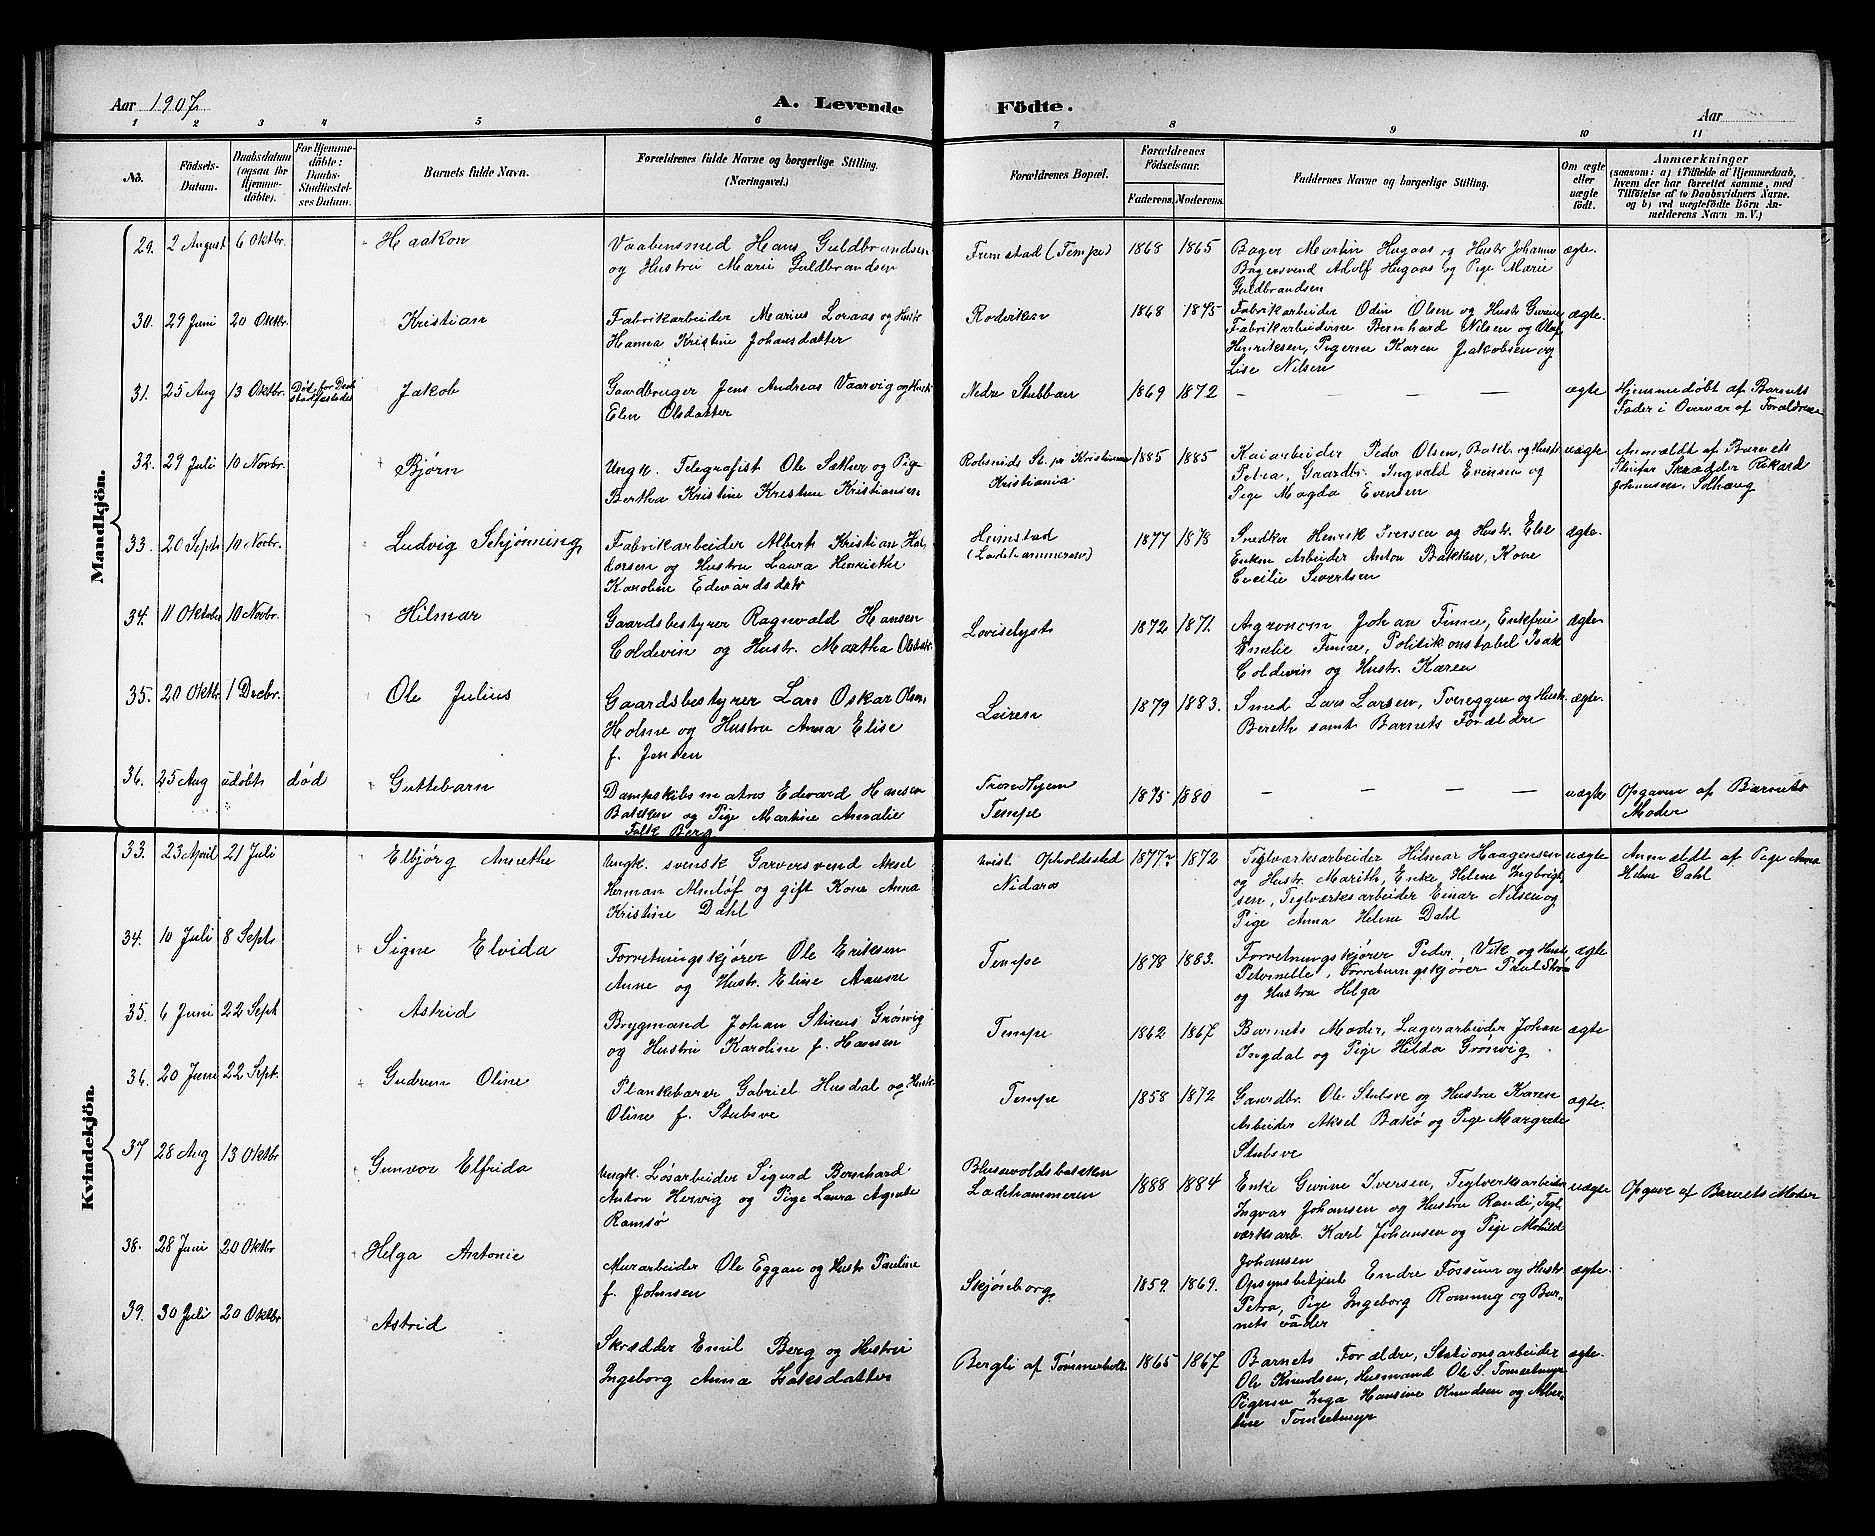 Aar 1907. A. Levende Födte. Aar
1 2 3 4 5 6 7 8 9 10 11
No. Födsels-Datum. Daabsdatum (ogsaa for Hjemme-döbte). For Hjemme-döbte: Daabs-Stadfæstel-ses Datum. Barnets fulde Navn. Forældrenes fulde Navne og borgerlige Stilling. (Næringsvei.) Forældrenes Bopæl. Forældrenes Födselsaar. Faderens. Moderens. Faddernes Navne og borgerlige Stilling. Om ægte eller uægte födt. Anmærkninger (saasom: a) i Tilfælde af Hjemmedaab, hvem der har forrettet samme, med Tilföielse af to Daabsvidners Navne. og b) ved uægtefödte Börn An-melderens Navn m. V.)
Mandkjön.
29. 2 August 6 Oktbr. Haakon Vaabensmed Hans Guldbrandsen Fremstad (Tempe) 1868 1865 Bager Martin Hugaas og Hustr Johanne ægte.
og Hustru Marie Guldbrandsen Bagersvend Adolf Hugaas og Pige Marie
Guldbrandsen
30. 29 Juni 20 Oktbr. Kristian Fabrikarbeider Marius Loraas og Hustr Rodviken 1868 1875 Fabrikarbeider Odin Olsen og Hustr Gurine, ægte.
Hanna Kristine Johansdatter Fabrikarbeiderne Bernhard Nilsen og Olaf
Henriksen, Pigerne Karen Jakobsen og
Lise Nilsen
31. 25 Aug 13 Oktbr. Død før Daab stadfæstedes Jakob Gaardbruger Jens Andreas Vaarvig og Hustr Nedre Stubban 1869 1872 — — — — ægte Hjemmedøbt af Barnets
Elen Olsdatter Fader i Overvær af Forældrene
32. 29 Juli 10 Novbr. Bjørn Ungk. Telegrafist Ole Sæther og Pige St. pr Kristiania 1885 1885 Kaiarbeider Peder Olsen, Bakl. og Hustr uægte Anmeldt af Barnets
Bertha Kristine Kristine Kristiansen Kristiania Petra, Gaardbr. Ingvald Evensen og Stifar Skrædder Rikard
Pige Magda Evensen Johansen, Solhaug
33. 20 Sept 10 Novbr. Ludvig Schjønning Fabrikarbeider Albert Kristian Hal- Heimstad 1877 1878 Snedker Henrik Iversen og Hustr. Else ægte.
torsen og Hustru Laura Henriette (Ladehammeren) Enkem Arbeider Anton Bakken, Kone
Karoline Edvardsdatr Cecilie Sivertsen
34. 11 Oktober 10 Novbr. Hilmar Gaardsbestyrer Ragnvald Hansen Loviselyst 1872 1871. Agronom Johan Finne, Enkefrue ægte
Coldevin og Hustr. Martha Olsdatr. Emelie Finne, Politikonstabel Isak
Coldevin og Hustr. Karen
35. 20 Oktbr. 1 Decbr. Ole Julius Gaardsbestyrer Lars Oskar Olsen Leiren 1879 1883. Smed Lars Larsen, Tvereggen og Hustr. ægte.
Holme og Hustru Anna Elise Bereth samt Barnets Forældre
f. Jensen
36. 25 Aug udøbt død Guttebarn Dampskibsmatros Edvard Hansen Trondhjem 1875 1880 — — — — uægte Opgaven af Barnets
Bakken og Pige Martine Amalie Tempe Moder
Falk Berg
Kvindekjön.
33. 23 April 21 Juli Elbjørg Anethe Ungk. svensk Garversvend Aksel uvist Opholdssted 1877? 1872 Teglværksarbeider Hilmar Haagensen uægte Anmeldt af Pige Anna
Herman Almlöf og gift Kone Anna Nidarø og Hustr. Marith, Enke Helene Ingbrigt- Helene Dahl
Kristine Dahl sen, Teglværksarbeider Einar Nilsen og
Pige Anna Helene Dahl
34. 10 Juli 8 Sept. Signe Elvida Forretningskjører Ole Eriksen Tempe 1878 1883. Forretningskjører Peder Vik og Hustr. ægte
Aune og Hustr. Eline Aaune Petornelle, Forretningskjører Paul Strøm
og Hustru Helga
35. 6 Juni 22 Sept Astrid Brygmand Johan Stinus Grønvig Tempe 1862 1867 Barnets Moder, Lagerarbeider Johan ægte
og Hustru Karoline f. Hansen Ingdal og Pige Hilda Grønvig
36. 20 Juni 22 Sept. Gudrun Oline Plankebærer Gabriel Husdal og Hustr. Tempe 1858 1872 Gaardbr. Ole Stubsve og Hustru Karen ægte.
Oline f. Stubsve Arbeider Aksel Bakø og Pige Margrete
Stubsve
37 28 Aug 13 Oktbr Gunvor Elfrida Ungk. Løsarbeider Sigurd Bernhard Bhusevoldsbakken 1888 1884 Enke Gurine Iversen, Teglverksarbeider uægte Opgave af Barnets Moder
Anton Hervig og Pige Laura Agnete Ladehammeren Ingvar Johansen og Hustru Randi, Tegl-
Ramsø værksarb. Karl Johansen og Pige Mathild
Johansen
38. 28 Juni 20 Oktbr Helga Antonie Murarbeider Ole Eggan og Hustr. Pauline Skjønborg 1859. 1869. Opsynsbetjent Endre Fossum og Hustr. ægte.
f. Johnsen Petra, Pige Ingeborg Ronning og Bar-
nets Fader
39. 30 Juli 20 Oktbr Astrid Skrædder Emil Berg og Hustru Bergli af Tømmerholt 1865 1867 Barnets Forældre, Stationsarbeider ægte.
Ingeborg Anna Larsdatter Ole Knudsen, Husmand Ole S. Tomsetmyr
Pigerne Inga Hansine Knudsen og Alber-
tine Tomsetmyr